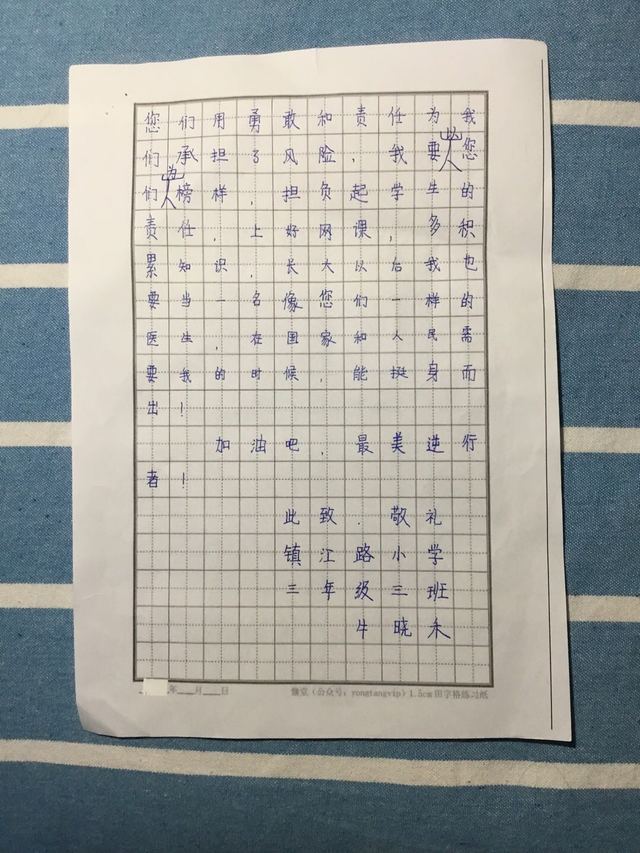 您们用勇敢和责任为我
们承担了风险，我要以您
们为榜样，担负起学生的
责任，上好网课，多的积
累知识，长大以后我也
要当一名像您们一样的
医生，在国家和人民需
要我的时候，能挺身而
出！
加油吧，最美逆行
者！
此致．敬礼
镇江路小学
三年级三班
牛晓禾
年___月___日
慵堂（公众号：yongtangvip）1.5cm田字格练习纸